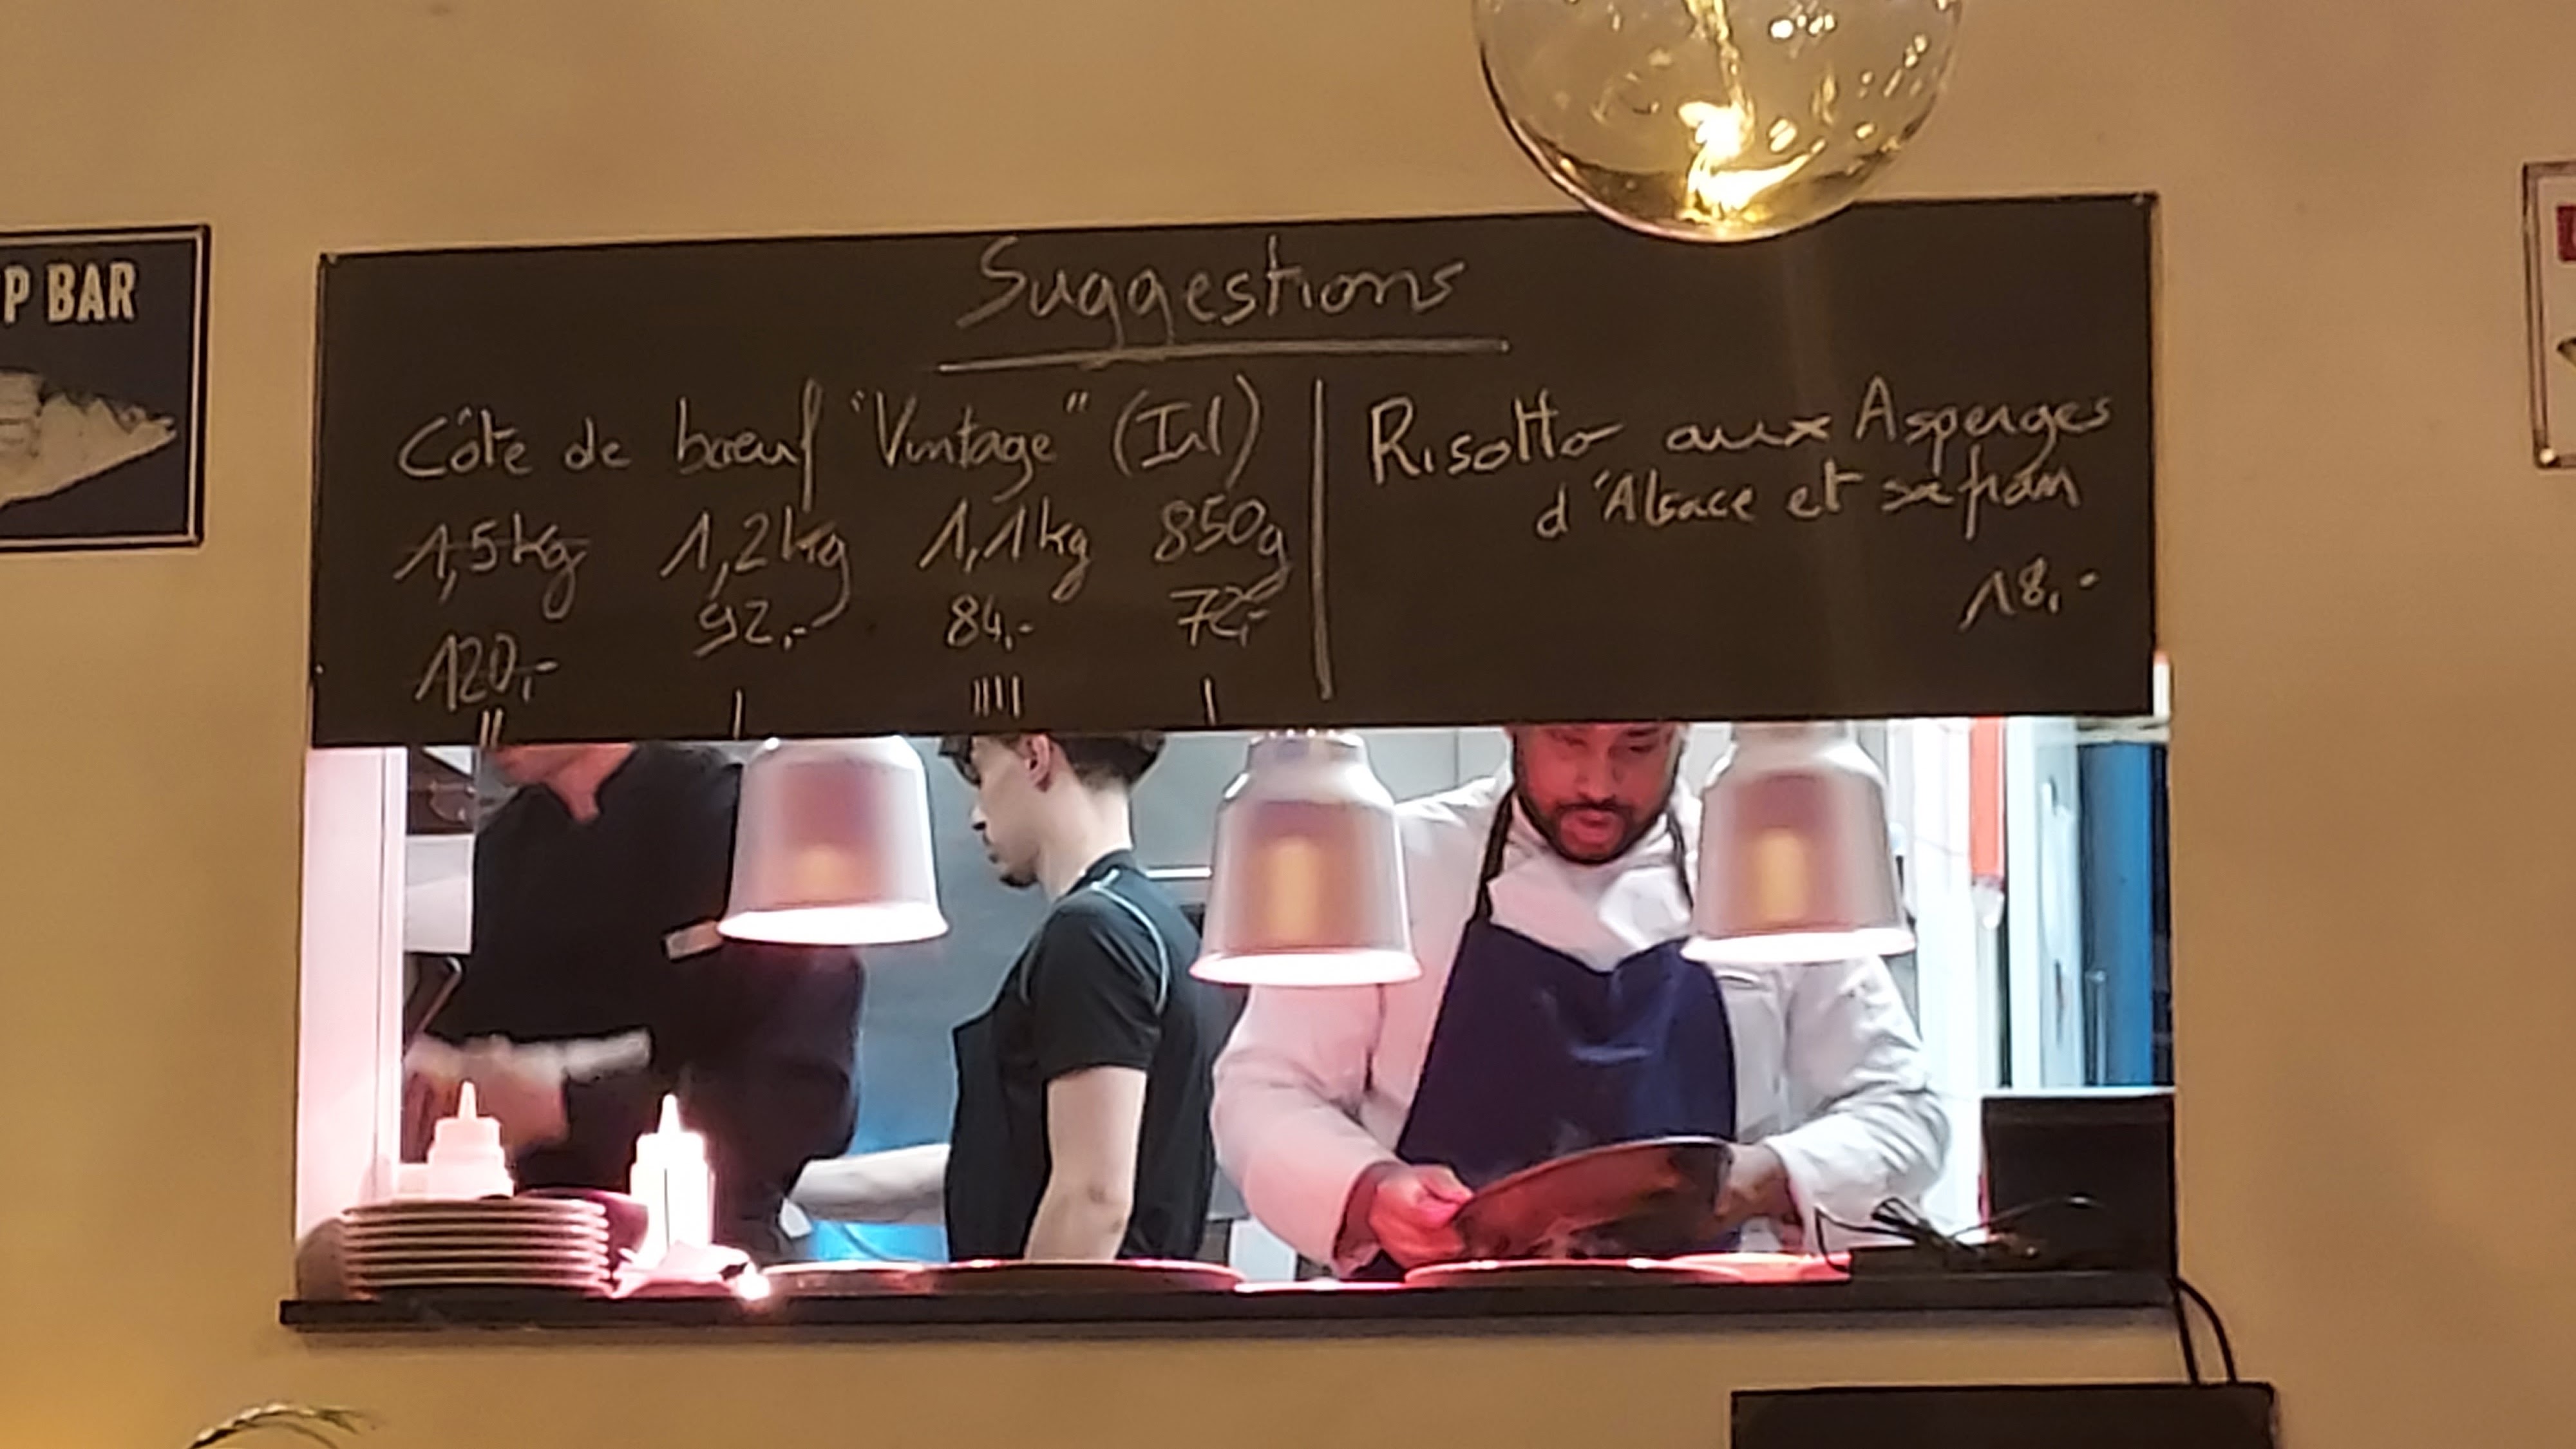 P BAR
Suggestions
Côte de bœuf "Vintage" (Irl)
1,5kg 1,2kg 1,1kg 850g
120,- 92,- 84,- 72,-
Risotto aux Asperges
d'Alsace et safran
18,-